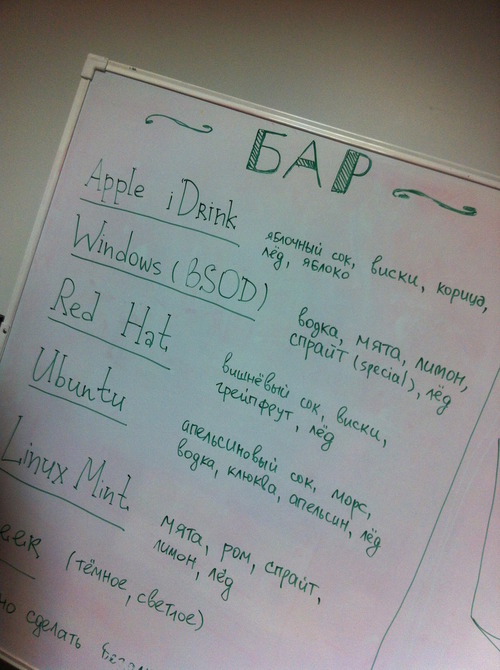 БАР
Apple iDrink
яблочный сок, виски, корица,
лёд, яблоко
Windows (BSOD)
водка, мята, лимон,
спрайт (special), лёд
Red Hat
вишнёвый сок, виски,
грейпфрут, лёд
Ubuntu
апельсиновый сок, морс,
водка, клюква, апельсин, лёд
Linux Mint
мята, ром, спрайт,
лимон, лёд
(тёмное, светлое)
сделать